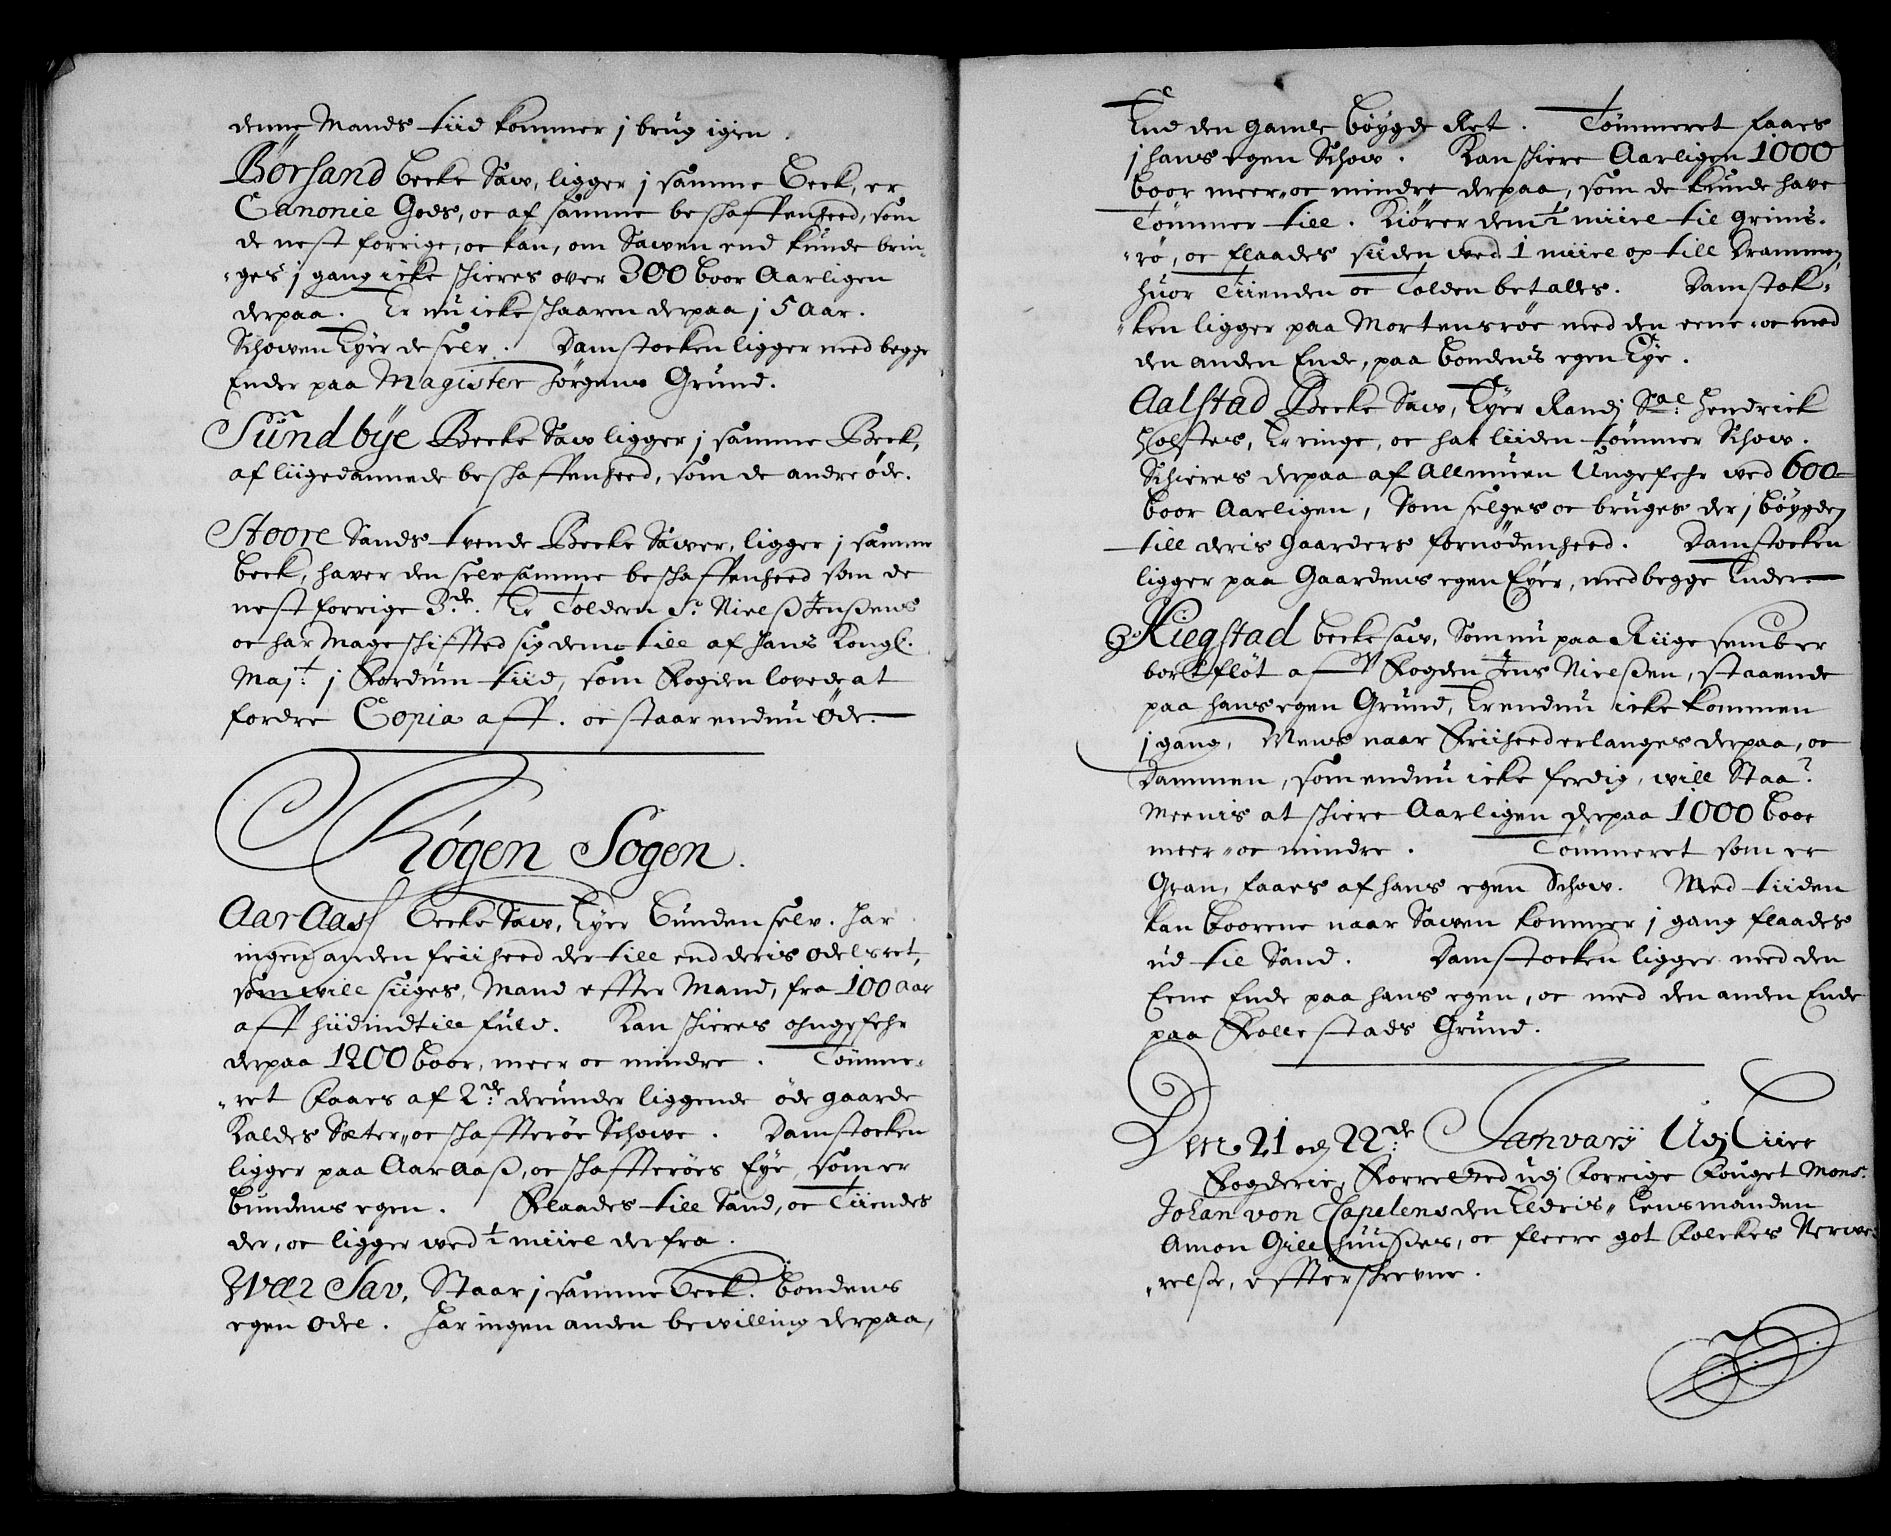 denne Mands tiid kommer j brug igien
Börsand becke Saw, ligger j samme beck, er
Canonie Gods, oc af samme beschaffenheed, som
de nest forrige, oc kan, om Sawen end kunde brin-
ges j gang icke schieres over 300 boor Aarligen
derpaa. Er nu icke schaaren derpaa j 5 Aar.
Schowen Eyer de selv. Damstocken ligger med begge
Ender paa Magister Jörgens Grund.
Sundbÿe Becke Saw ligger j samme Beck,
af liigedannede beschaffenheed, som de andre øde.
Stoore Sands tvende Becke Sawer, ligger j samme
beck, haver den selv samme beschaffenheed som de
nest forrige 3de. Er Tolderen Sr. Nielß Jenßens
oc har Mageschifted sig dem till af Hans Kongl.
Majt: j Fordum tiid, som Fogden lovede at
fordre Copia aff. oc staar endnu Öde.
Høgen Sogen.
Aar Aass becke Saw, Eyer bunden selv. Har
ingen anden friiheed der till end deris Odelsret,
som will siiges, Mand effter Mand, fra 100 Aar
aff hiidindtill fuld. Kan schieres ohngefehr
derpaa 1200 boor, meer oc mindre. Tömme-
ret faaes af 2de: derunder liggende øde gaarde
Kaldes Sæter oc schaffteröe Schowe. Damstocken
ligger paa Aaraaß, oc schaffteröes Eye, som er
bundens egen. Flaades till Sand, oc Tiiendes
der, oc ligger wed ½ miiel derfra.
Wær Sav, Staar j samme beck. Bondens
egen Odel. Har ingen anden bewilling derpaa,
End den gamle böygde Ret. Tömmeret faaes
j hans egen Schow. Kan schiere Aarligen 1000
boor meer oc mindre derpaa, som de kunde have
Tömmer till. Kiörer dem ½ miiel til Grims-
rö, oc flaades siiden wed 1 miiel op till Drammen,
huor Tiienden oc Tolden betalles. Damstok-
ken ligger paa Mortensröe med den eene oc med
den anden Ende, paa bondens egen Eye.
Aalstad Becke Saw, Eyer Randj Sal: Hendrick
Holstes, Er ringe, oc hat liiden tömmer Schow.
Schieres derpaa af Allmuen Ungefehr wed 600
boor Aarligen, Som selges oc bruges der j böygden
till deris Gaarders fornödenheed. Damstocken
ligger paa Gaardens egen Eyer, med begge Ender.
Kiegstad becke saw, Som nu paa Kiige sember
bortfløt aff Fogden Jens Nielßen, staaende
paa hans egen Grund, Er endnu icke kommen
j gang, Mens naar Friiheed erlanges derpaa, oc
Dammen, som endnu icke ferdig, will Staa?
Meenis at schiere Aarligen derpaa 1000 boor
meer oc mindre. Tömmeret som er
Gran, faaes af hans egen Schow. Med tiiden
kan boorene naar Sawen kommer j gang flaades
ud til Sand. Damstocken ligger med den
Eene Ende paa hans egen, oc med den anden Ende
paa Follestads Grund.
Den 21 og 22de: Januarÿ Udj Liier
Fogderie, Forretted udj forrige fouget Mons.
Johan von Capelens den Eldris Lensmanden
Amon Gillhuußes, oc fleere got folckes Nerwe-
relße, effterschrevne.